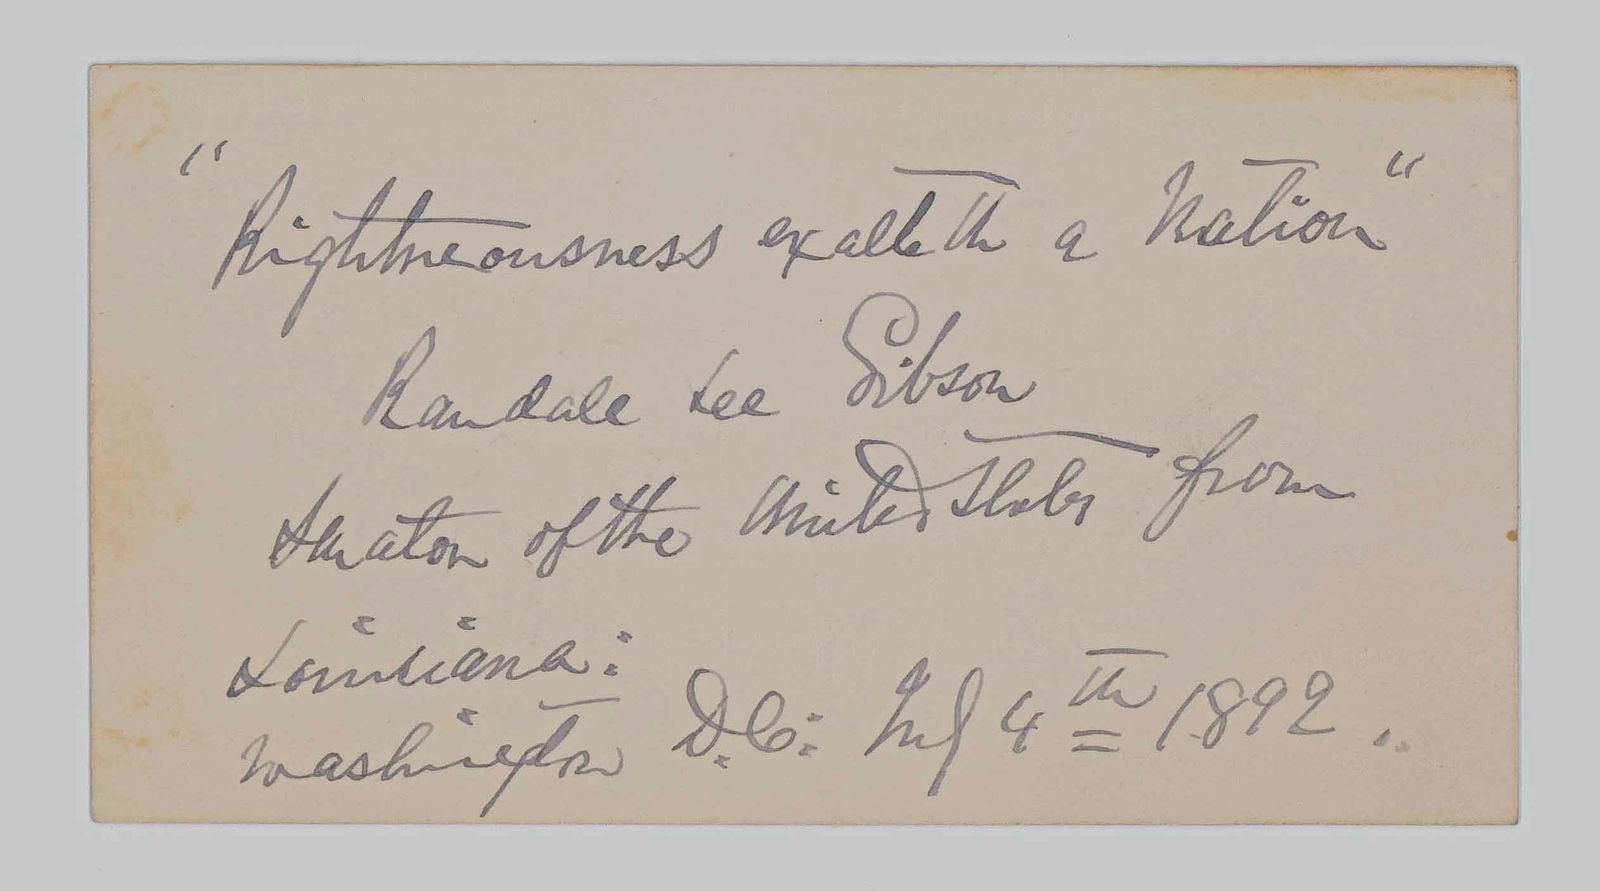 "Righteousness exalteth a Nation"
Randall Lee Gibson
Senator of the United States from
Louisiana:
Washington D.C: July 4th 1892.